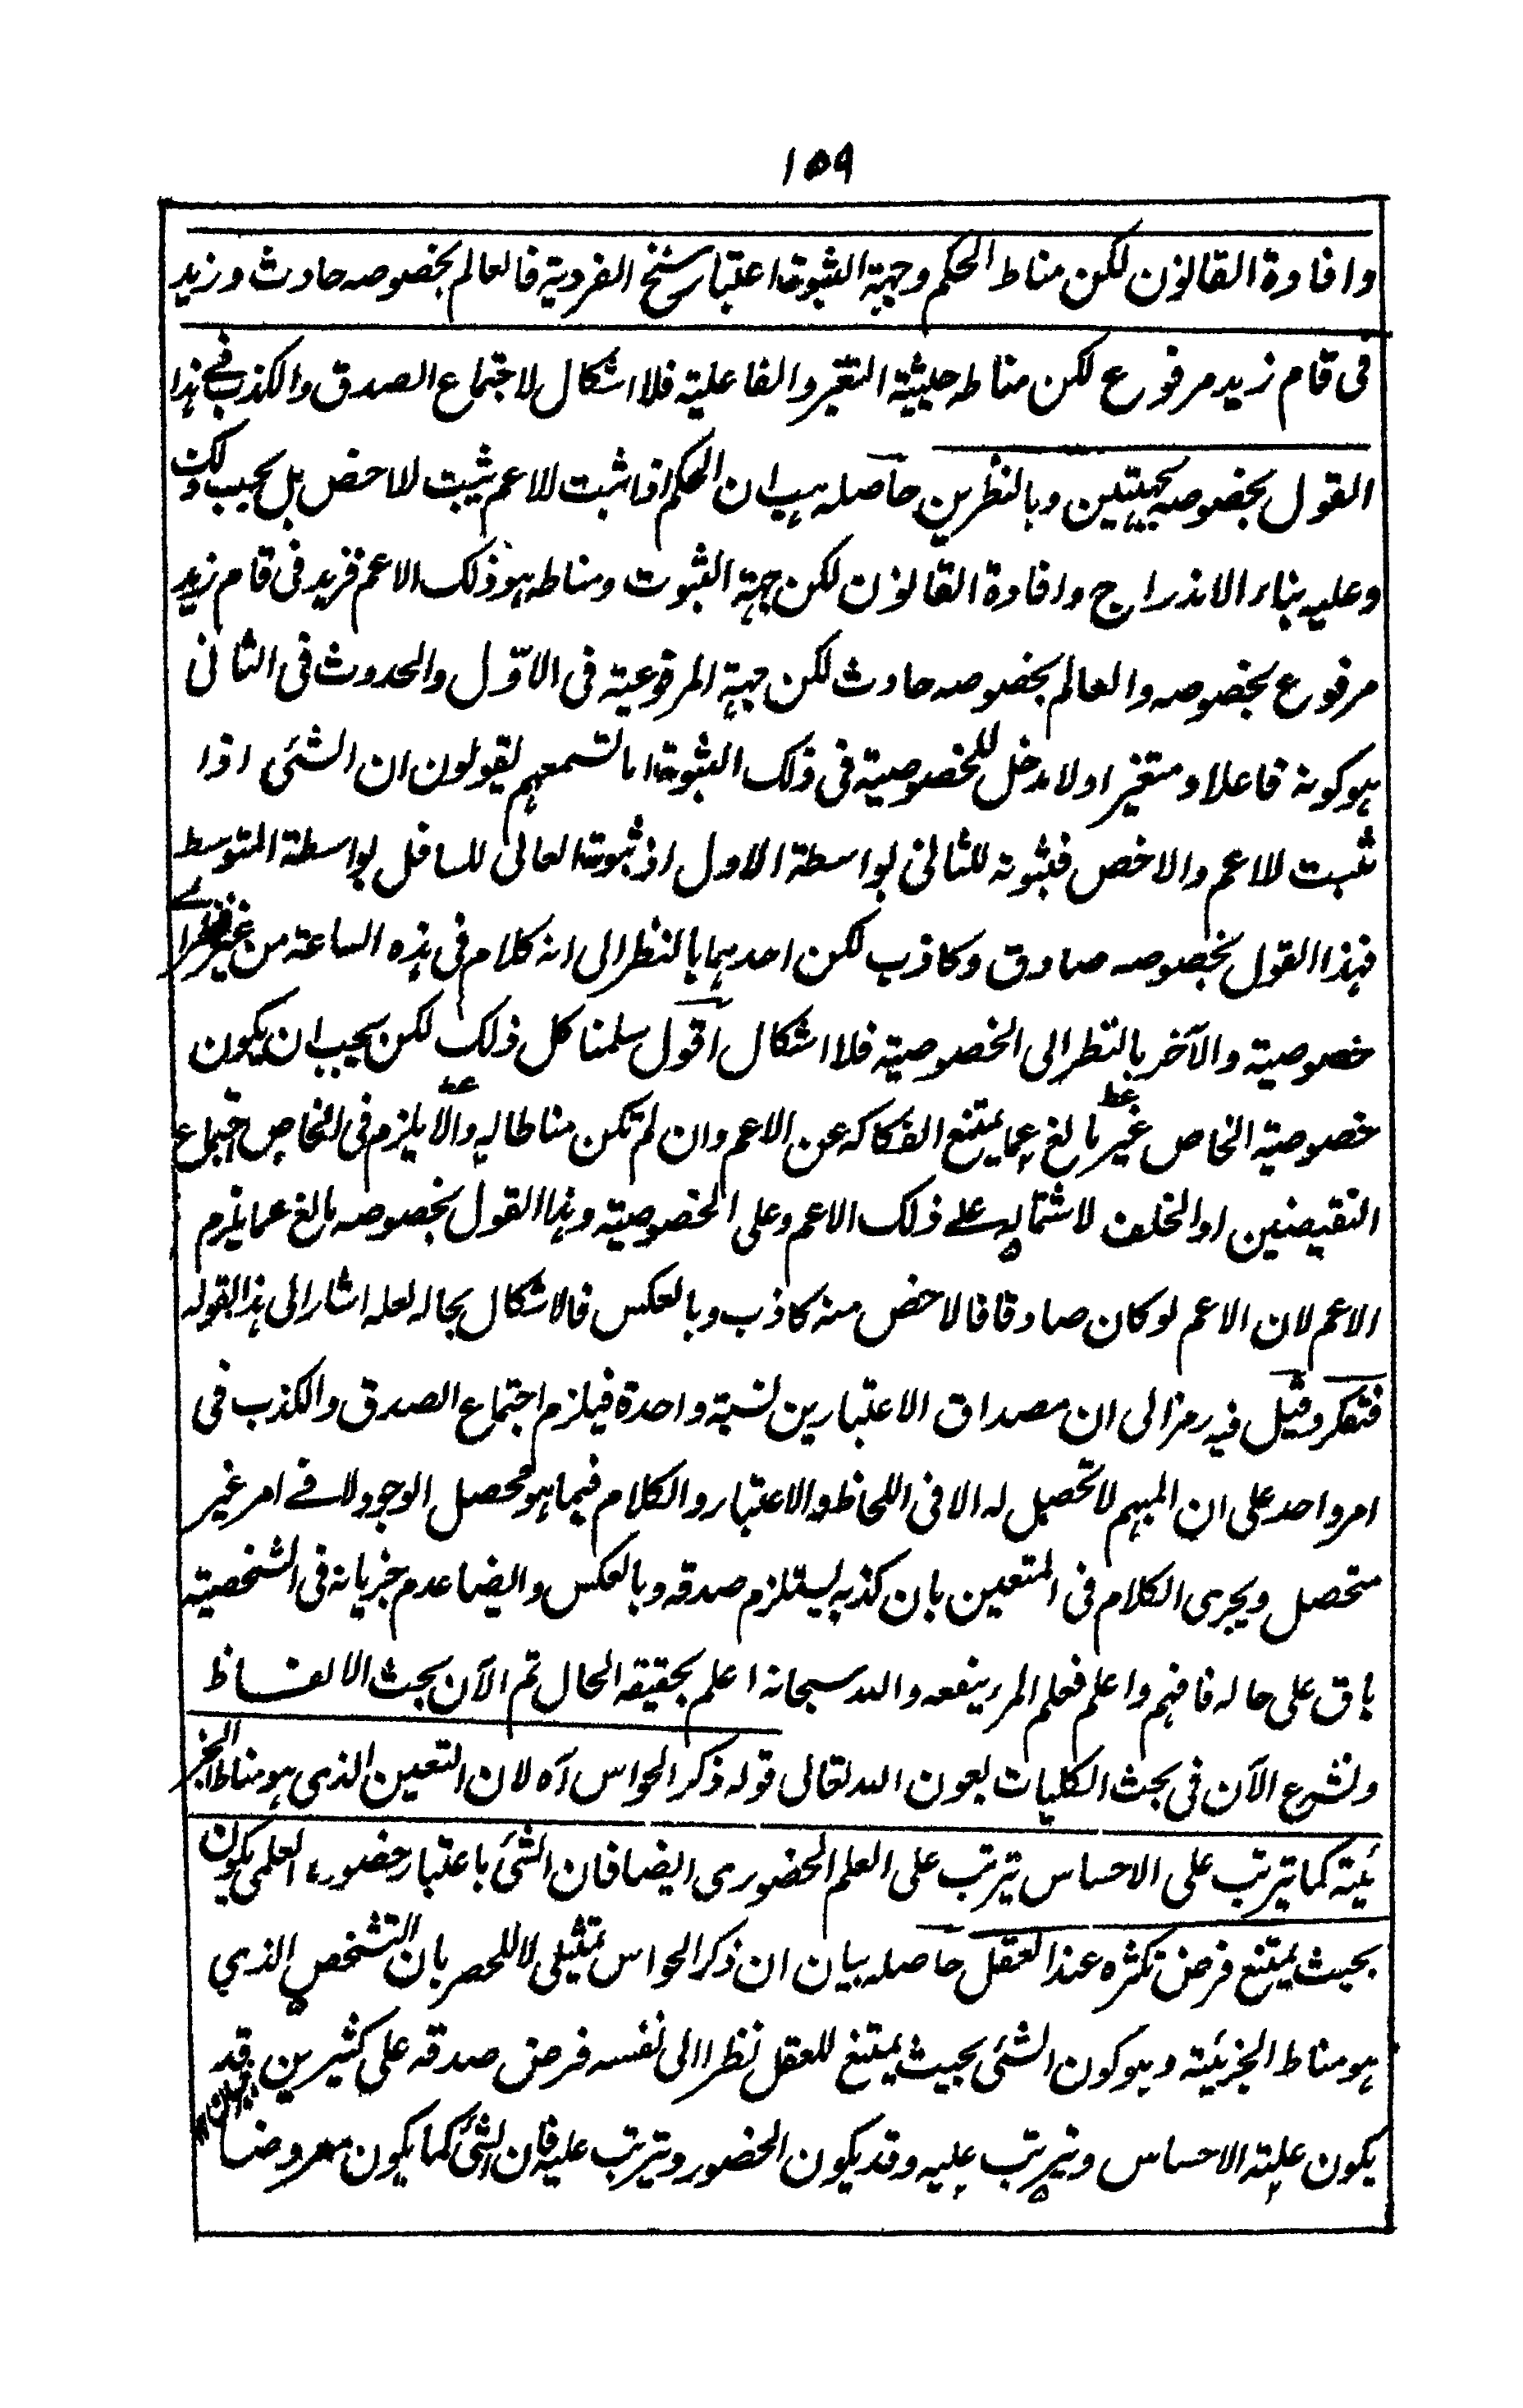 ١٥٩
وافادة القانون لكن مناط الحكم وجهة الثبوت اعتبار سنخ الفردية فالعالم بخصوصه حادث وزيد
فى قام زيد مرفوع لكن مناطه حيثية التغير والفاعلية فلا اشكال لاجتماع الصدق والكذب فى هذا
القول بخصوصه بجهتين وبالنظرين حاصله ان الحكم اذا ثبت للاعم يثبت للاخص بل يجب ذلك
وعليه بناء الاندراج وافادة القانون لكن جهة الثبوت ومناطه هو ذلك الاعم فزيد فى قام زيد
مرفوع بخصوصه والعالم بخصوصه حادث لكن جهة المرفوعية فى الاوّل والحدوث فى الثانى
هو كونه فاعلا ومتغيرا ولا مدخل للخصوصية فى ذلك الثبوت اما تسمعهم يقولون ان الشئ اذا
ثبت للاعم والاخص فثبوته للثانى بواسطة الاول اذ ثبوت العالى للسافل بواسطة المتوسط
فهذا القول بخصوصه صادق وكاذب لكن احدهما بالنظر الى انه كلام فى هذه الساعة من غير نظر الى
خصوصية والآخر بالنظر الى الخصوصية فلا اشكال اقول سلمنا كل ذلك لكن يجب ان يكون
خصوصية الخاص غير بالغ عما يمتنع انفكاكه عن الاعم وان لم تكن مناطا له والا يلزم فى الخاص اجتماع
النقيضين او الخلف لاشتماله على ذلك الاعم وعلى الخصوصية وهذا القول بخصوصه بالغ عما يلزم
الاعم لان الاعم لو كان صادقا فالاخص منه كاذب وبالعكس فالاشكال بحاله لعله اشار الى هذا بقوله
فتفكر وقيل فيه رمز الى ان مصداق الاعتبارين نسبة واحدة فيلزم اجتماع الصدق والكذب فى
امر واحد على ان المبهم لا تحصيل له الا فى اللحاظ والاعتبار والكلام فيما هو محصل الوجود لا فے امر غير
متحصل ويجرى الكلام فى المتعين بان كذبه يستلزم صدقه وبالعكس وايضا عدم جريانه فى الشخصية
باق على حاله فافهم واعلم فعلم المرء ينفعه والله سبحانه اعلم بحقيقة الحال تم الآن بحث الالفاظ
ولنشرع الآن فى بحث الكليات بعون الله تعالى قوله ذكر الحواس آه لان التعين الذى هو مناط الجز
ئية كما يترتب على الاحساس يترتب على العلم الحضورى ايضا فان الشئ باعتبار حضوره العلمى يكون
بحيث يمتنع فرض تكثره عند العقل حاصله بيان ان ذكر الحواس تمثيلى لا للحصر بان التشخص الذي
هو مناط الجزئية وهو كون الشئ بحيث يمتنع للعقل نظرا الى نفسه فرض صدقه على كثيرين قد
يكون علية الاحساس ويترتب عليه وقد يكون الحضور ويترتب عليه فان الشئ كما يكون معروضا